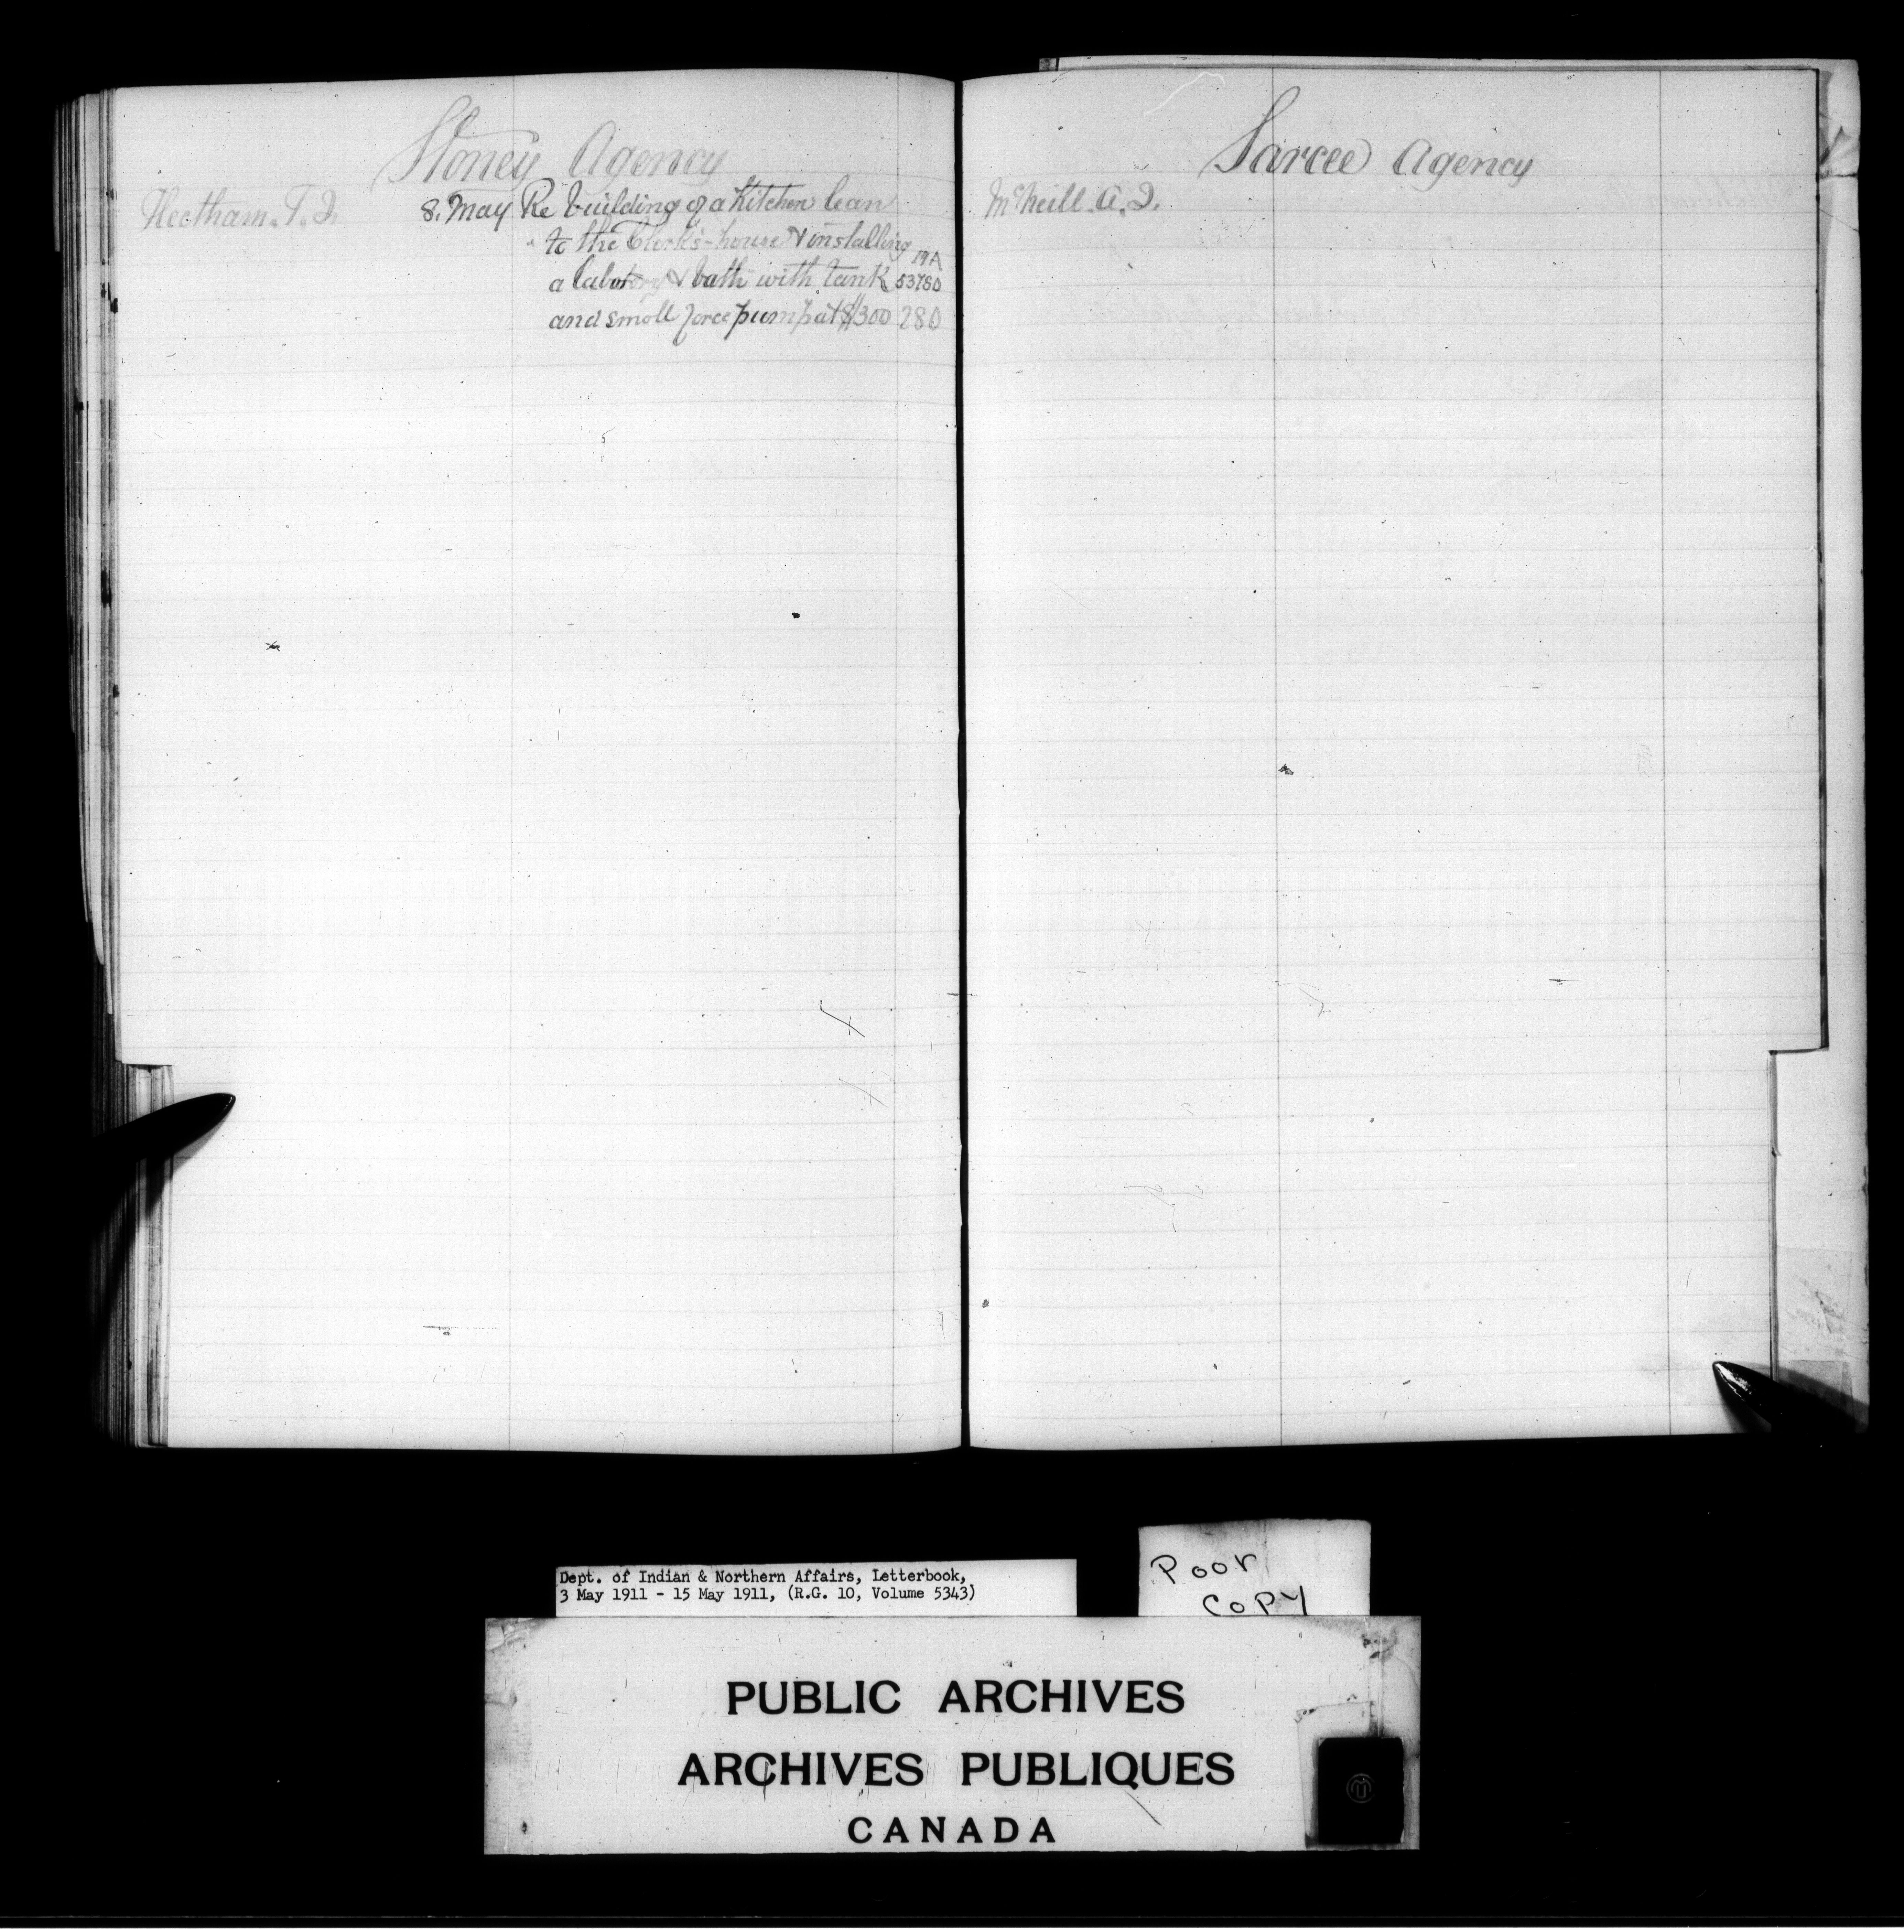 Stoney Agency
Heetham. T. J. 8. May Re building of a Kitchen lean
to the Clerk's-house & installing 19A
a labotory & bath with tank 53780
and small force pump at $300 280
Sarcee Agency
McNeill. A. J.
Dept. of Indian & Northern Affairs, Letterbook,
3 May 1911 - 15 May 1911, (R.G. 10, Volume 5343)
Poor
Copy
PUBLIC ARCHIVES
ARCHIVES PUBLIQUES
CANADA